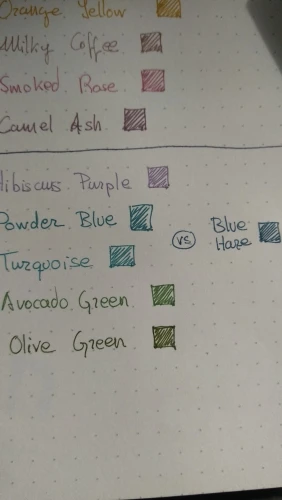 Orange Yellow
Milky Coffee
Smoked Rose
Camel Ash
Hibiscus Purple
Powder Blue
vs
Blue
Haze
Turquoise
Avocado Green
Olive Green